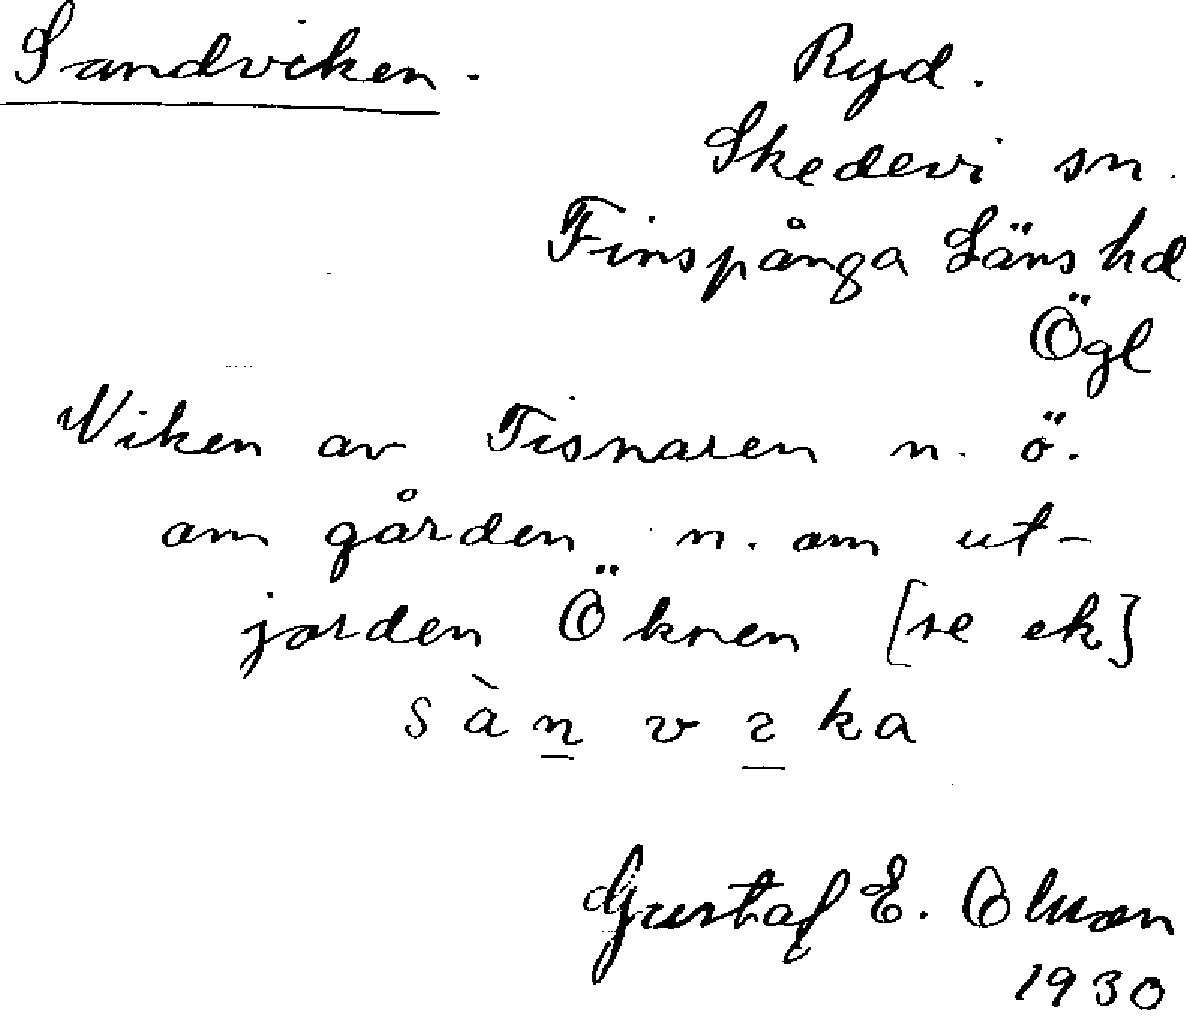 Sandviken. Ryd.
Skedevi sn.
Finspånga Läns hd
Ögl
Viken av Tisnaren n. ö.
om gården n. om ut-
jorden Öknen [se ek]
sànvıka
Gustaf E. Olson
1930